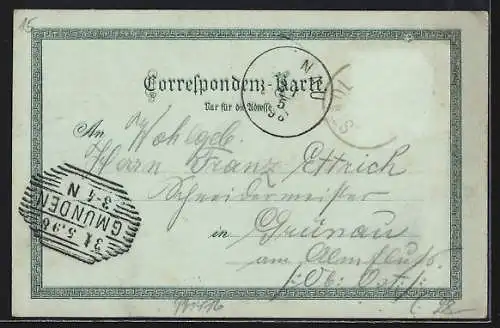 15
Correspondenz-Karte.
Nur für die Adresse.
An Wohlgeb.
Herrn Franz Ettrich
Schneidermeister
in Grünau
am Almfluss
/:Ob: Öst:/
GMUNDEN
31.5.98
3-4 N